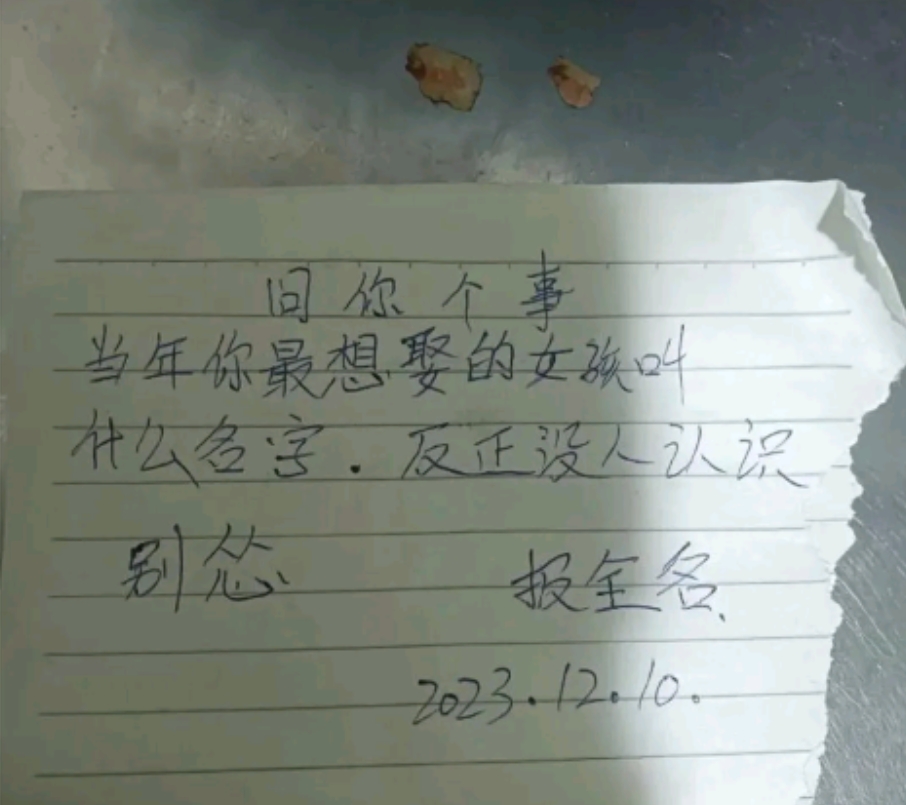 问你个事
当年你最想娶的女孩叫
什么名字.反正没人认识
别怂 报全名.
2023.12.10.